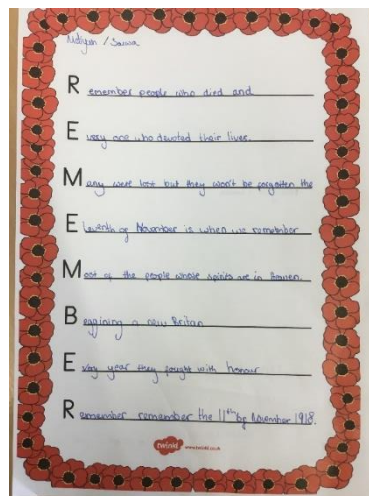 / Sanwa
Remember people who died and
Every one who devoted their lives.
Many were lost but they won't be forgotten the
Eleventh of November is when we remember
Most of the people whose spirits are in heaven.
Beggining a new Britan
Every year they fought with honour
Remember remember the 11th of November 1918.
twinkl www.twinkl.co.uk